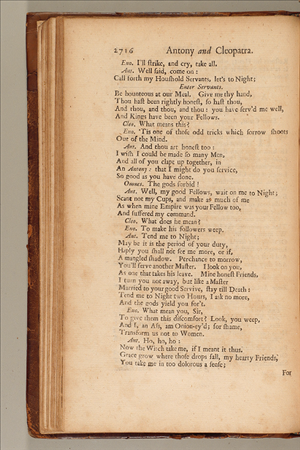 2716 Antony and Cleopatra.
Eno. I'll strike, and cry, take all.
Ant. Well said, come on:
Call forth my Houshold Servants, let's to Night;
Enter Servants.
Be bounteous at our Meal. Give me thy hand,
Thou hast been rightly honest, so hast thou,
And thou, and thou, and thou: you have serv'd me well,
And Kings have been your Fellows.
Cleo. What means this?
Eno. 'Tis one of those odd tricks which sorrow shoots
Out of the Mind.
Ant. And thou art honest too:
I wish I could be made so many Men,
And all of you clapt up together, in
An Antony: that I might do you service,
So good as you have done.
Omnes. The gods forbid!
Ant. Well, my good Fellows, wait on me to Night;
Scant not my Cups, and make as much of me
As when mine Empire was your Fellow too,
And suffered my command.
Cleo. What does he mean?
Eno. To make his followers weep.
Ant. Tend me to Night;
May be it is the period of your duty,
Haply you shall not see me more, or if,
A mangled shadow. Perchance to morrow,
You'll serve another Master. I look on you,
As one that takes his leave. Mine honest Friends,
I turn you not away, but like a Master
Married to your good Service, stay till Death:
Tend me to Night two Hours, I ask no more,
And the gods yield you for't.
Eno. What mean you, Sir,
To give them this discomfort? Look, you weep,
And I, an Ass, am Onion-ey'd; for shame,
Transform us not to Women.
Ant. Ho, ho, ho:
Now the Witch take me, if I meant it thus.
Grace grow where those drops fall, my hearty Friends,
You take me in too dolorous a sense;
For